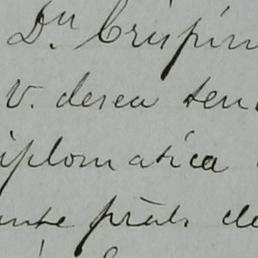 Dn. Crispin
V. desea ten
iplomatica
ante
de